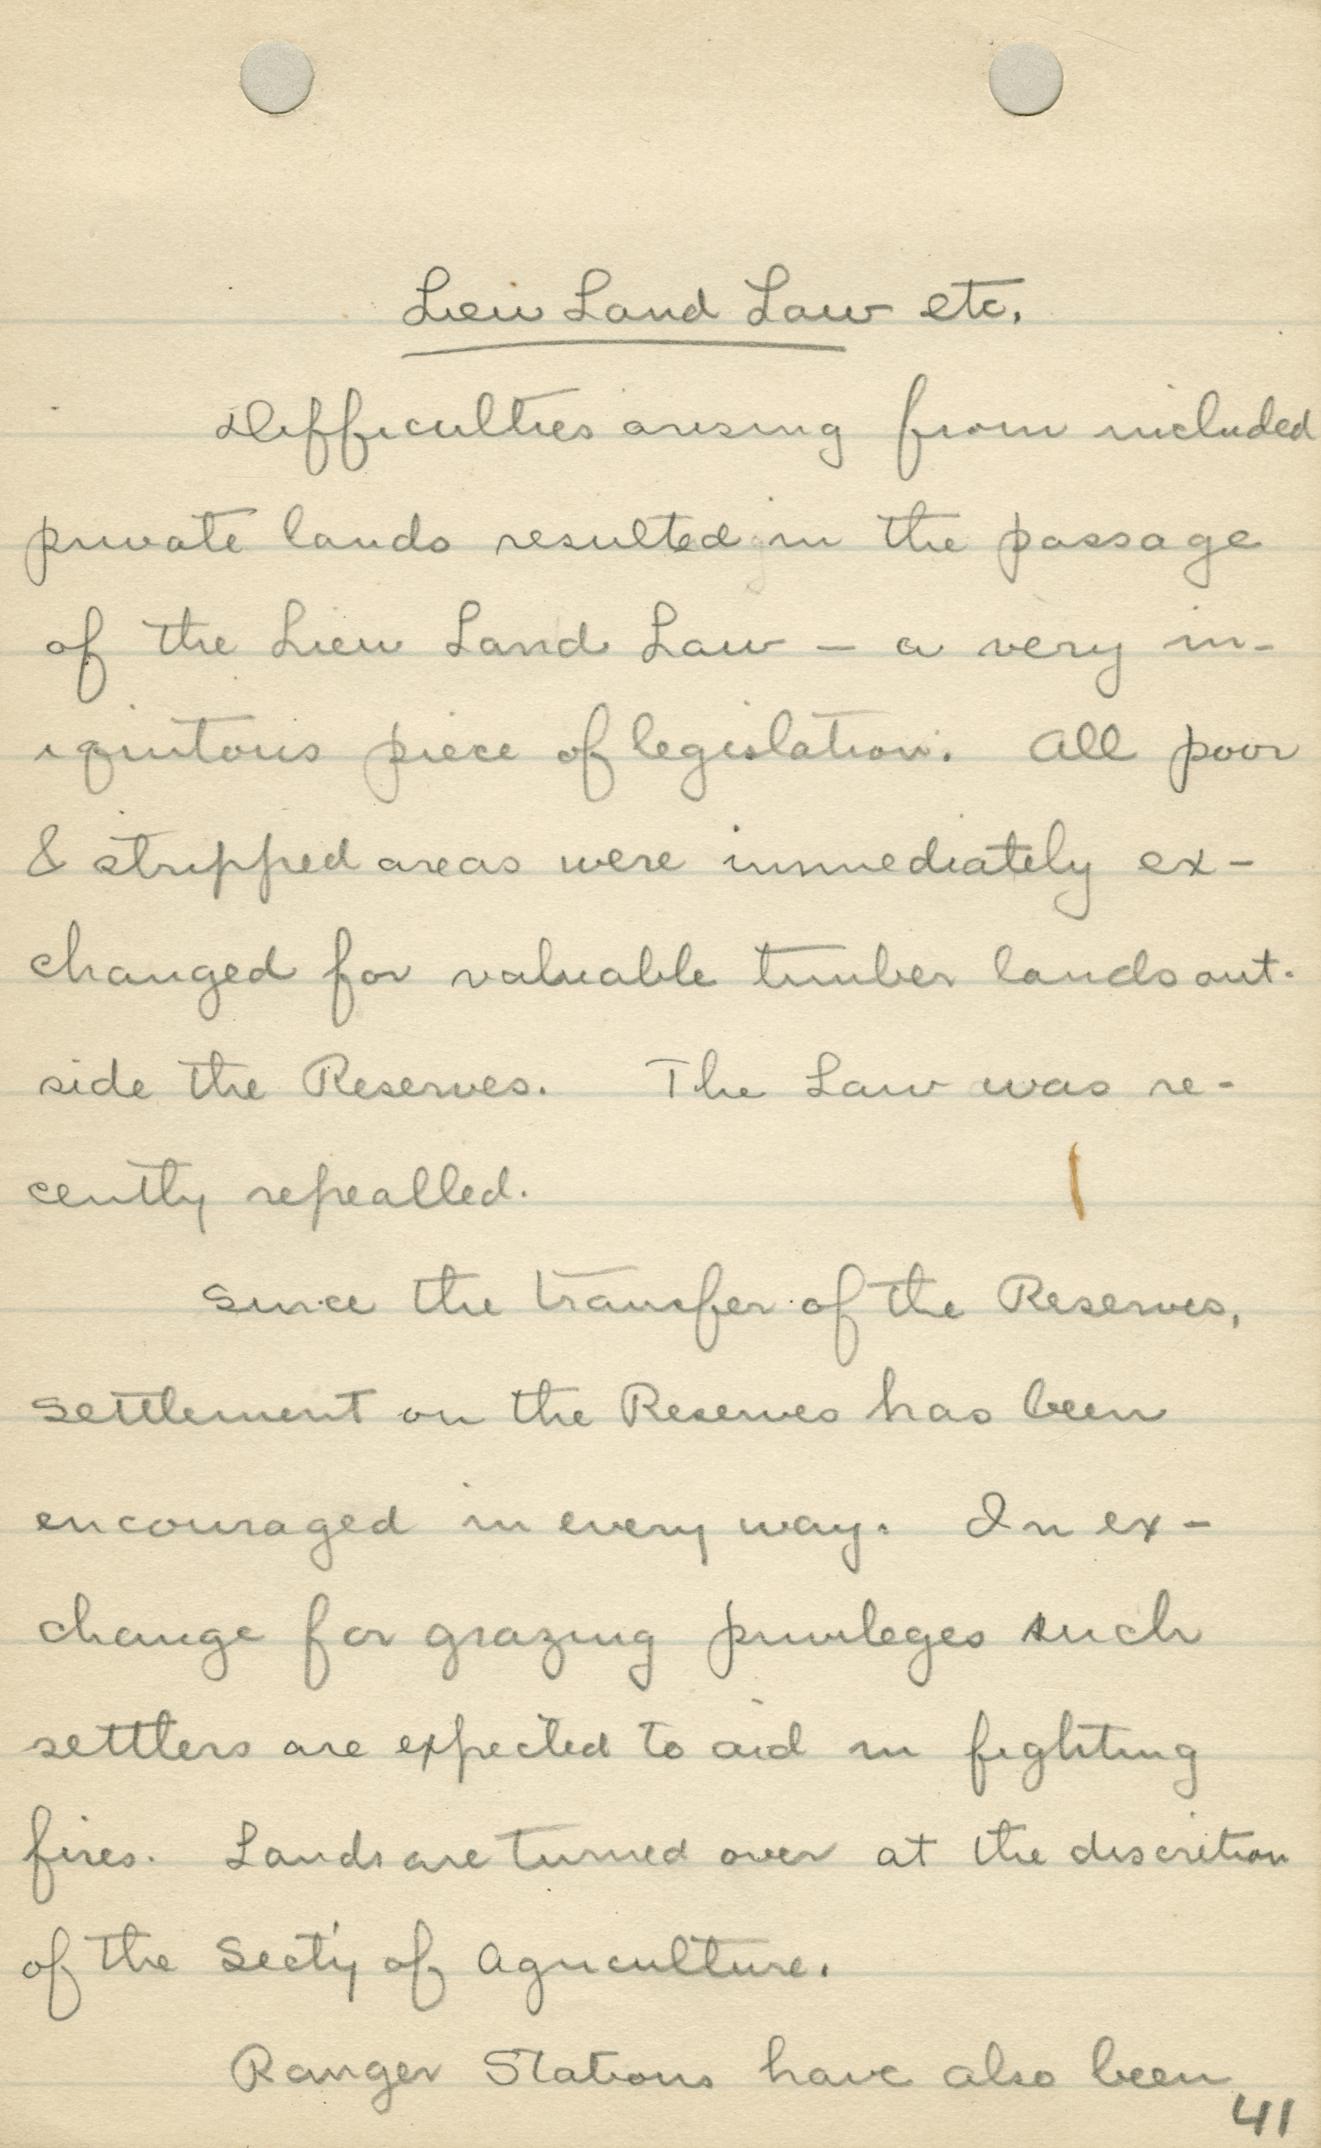 Lieu Land Law etc.
Difficulties arising from included
private lands resulted in the passage
of the Lieu Land Law – a very in-
iquitous piece of legislation. All poor
& stripped areas were immediately ex-
changed for valuable timber lands out-
side the Reserves. The Law was re-
cently repealled.
Since the transfer of the Reserves,
settlement on the Reserves has been
encouraged in every way. In ex-
change for grazing privileges such
settlers are expected to aid in fighting
fires. Lands are turned over at the discretion
of the Sect'y of Agriculture.
Ranger Stations have also been
41